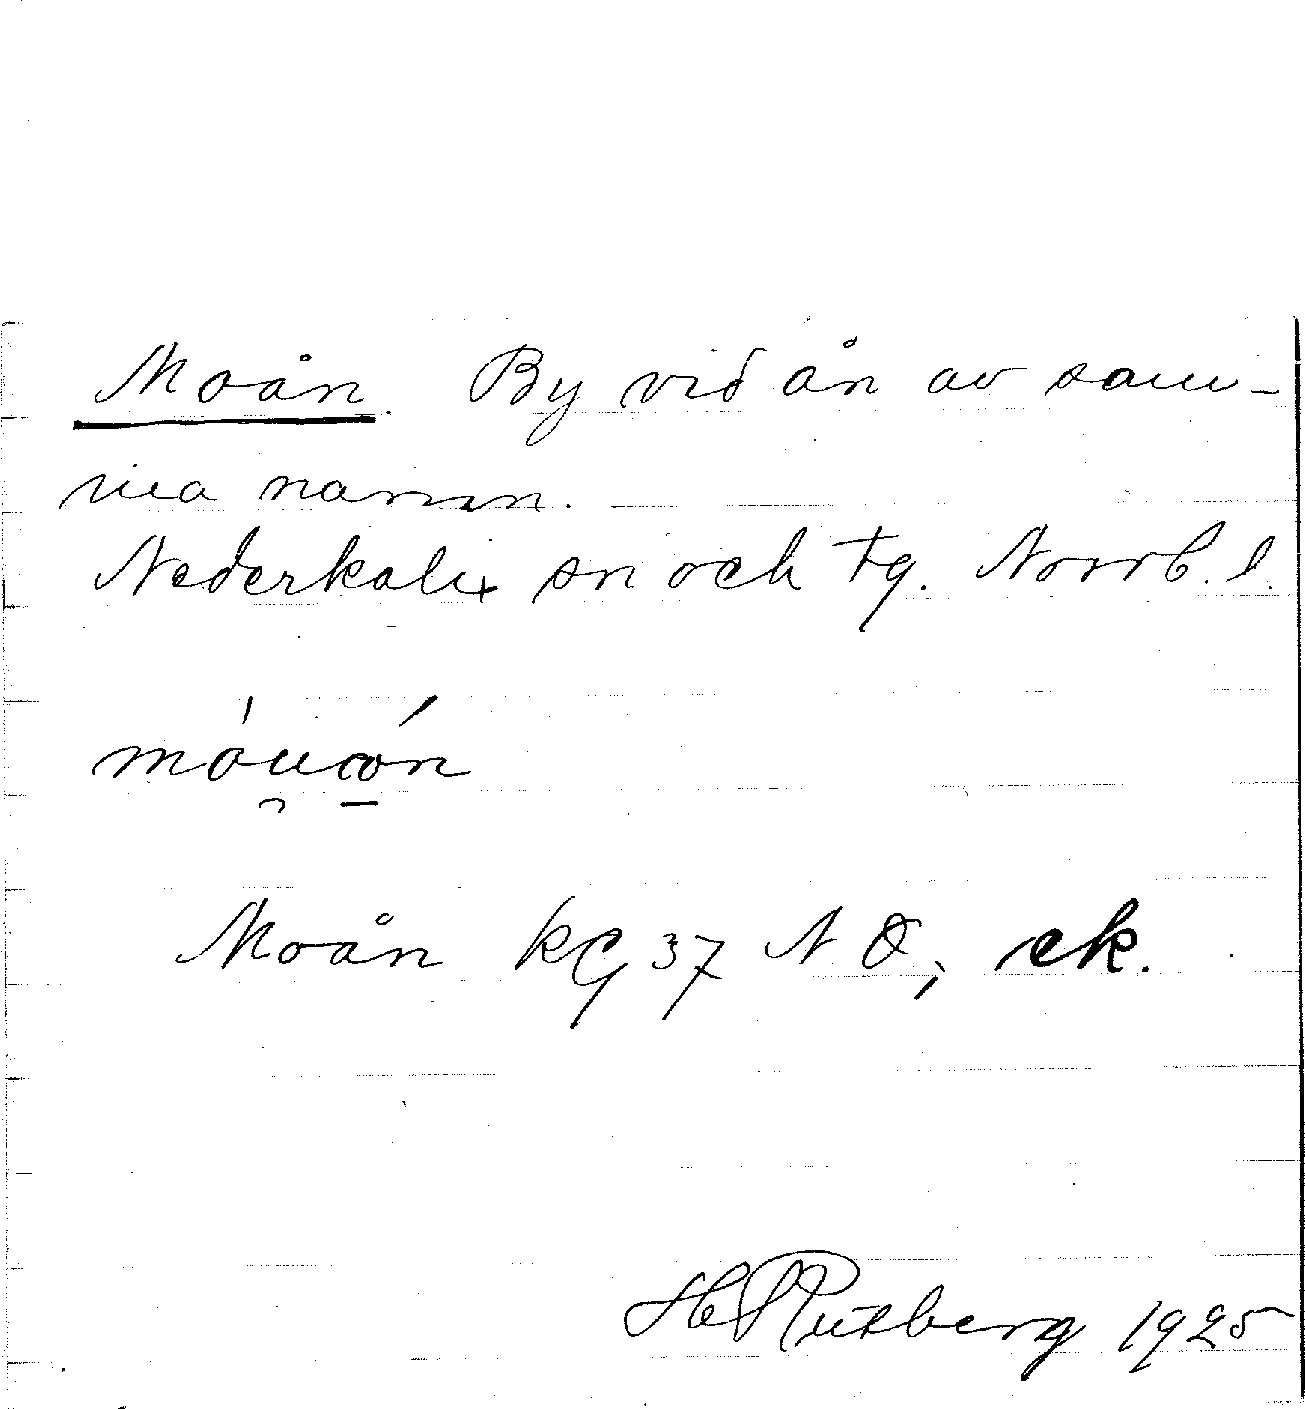 Moån. By vid ån av sam-
ma namn.
Nederkalix sn och tg. Norrb. l.
Moån kg 37 NO, ek.
H Rutberg 1925